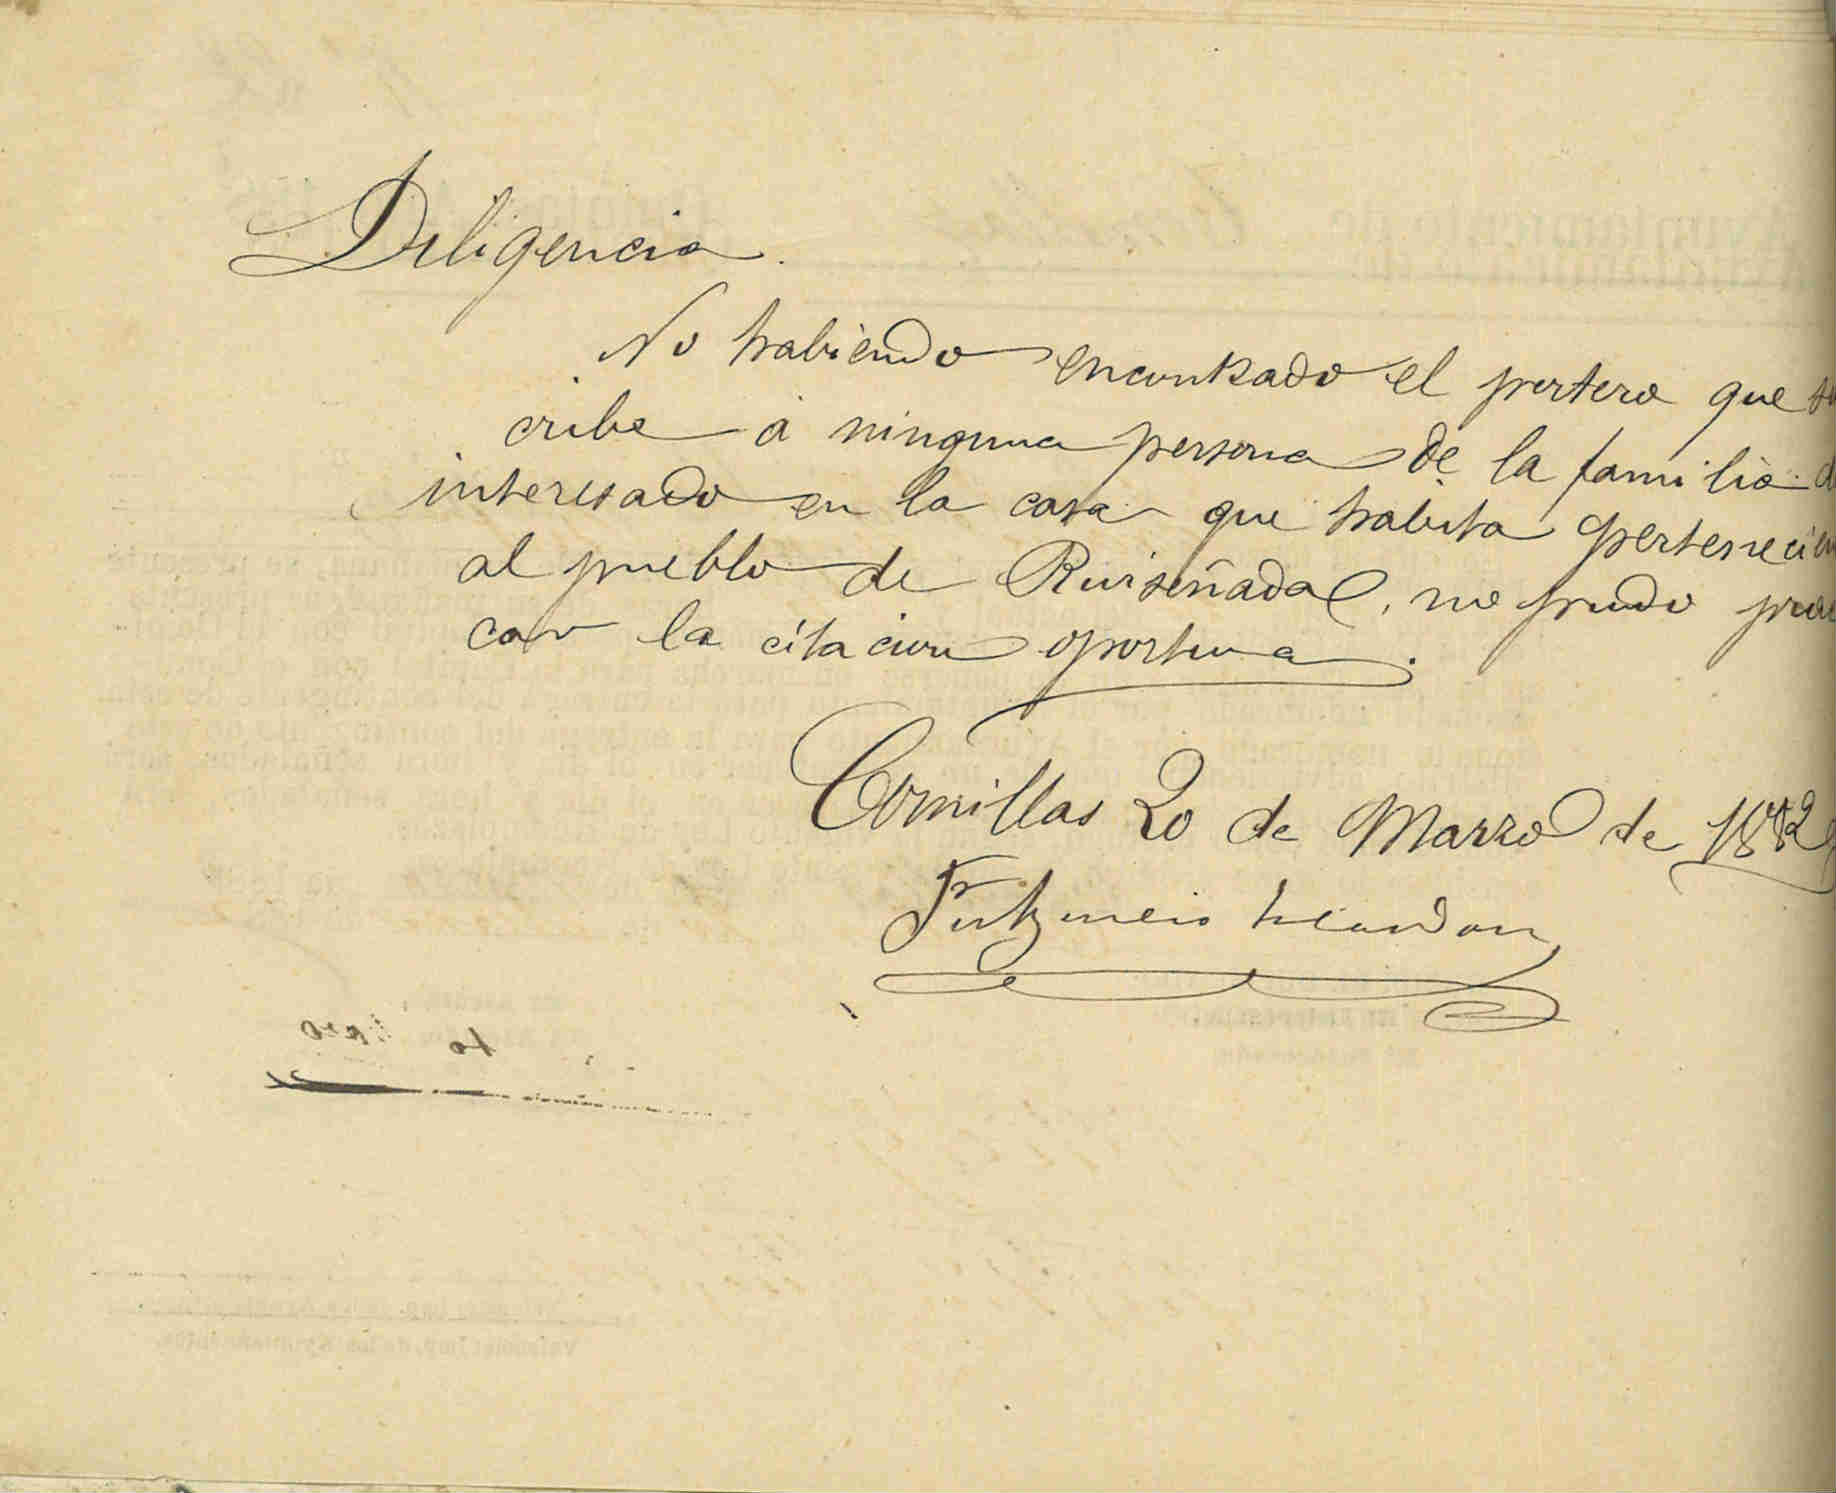 Diligencia.
No habiendo encontrado el portero que su
cribe á ninguna persona de la familia d
interesado en la casa que habita pertenecien
al pueblo de Ruiseñada, no pudo prac
car la citacion oportuna.
Comillas 20 de Marzo de